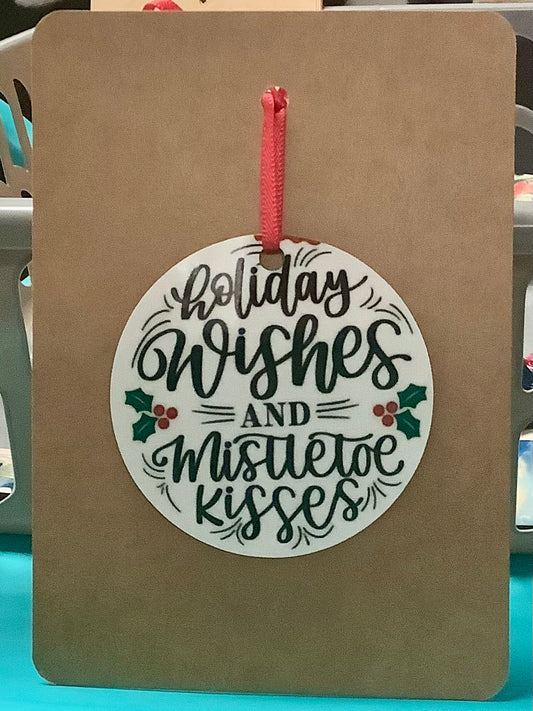 holiday
Wishes
AND
Mistletoe
kisses